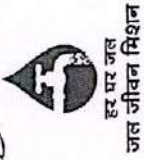 हर घर जल
जल जीवन मिशन